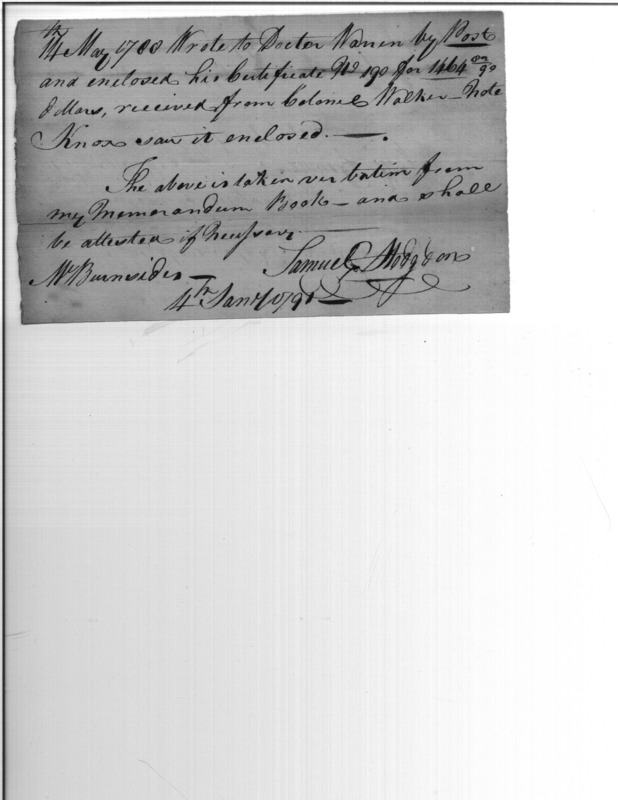 14th May 1788 Wrote to Doctor Warren by Post
and enclosed his Certificate No 190 for 1464 80/90
dollars, received from Colonel Walker - Note
Knox saw it enclosed. —.
The above is taken verbatim from
my Memorandum Book - and shall
be attested if Necessary —
Samuel Hodgdon
Mr Burnsides —
4th Jany 1791 —